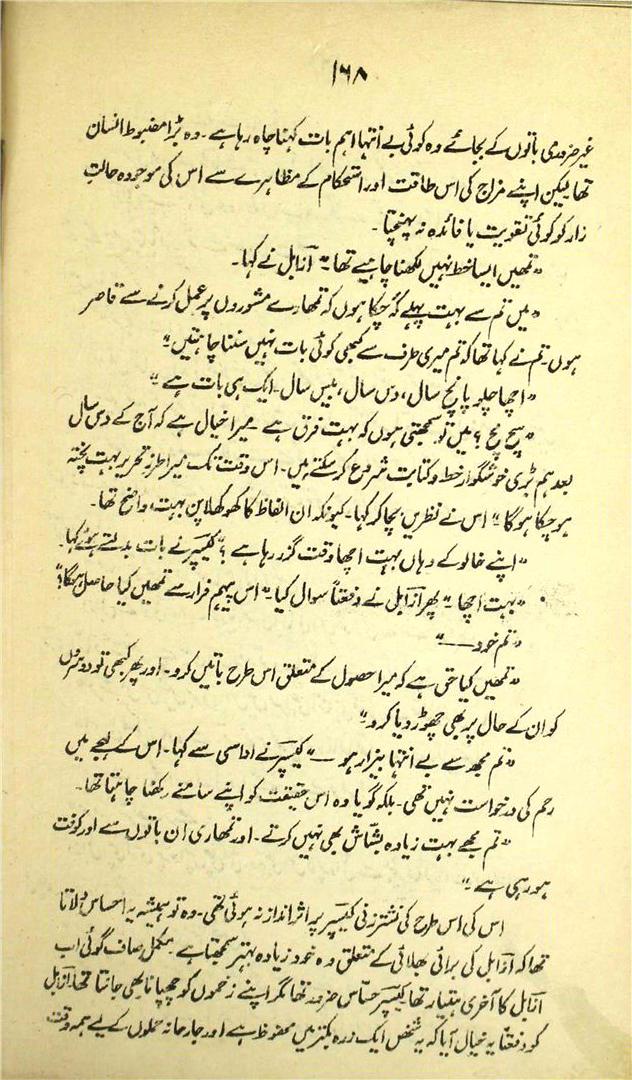 ۱۶۸
غیر ضروری باتوں کے بجائے وہ کوئی بے انتہا اہم بات کہنا چاہ رہا ہے۔ وہ بڑا مضبوط انسان
تھا لیکن اپنے مزاج کی اس طاقت اور استحکام کے مظاہرے سے اس کی موجودہ حالتِ
زار کو کوئی تقویت یا فائدہ نہ پہنچتا۔
"تمھیں ایسا خط نہیں لکھنا چاہیے تھا۔" ازابل نے کہا۔
"میں تم سے بہت پہلے کہہ چکا ہوں کہ تمھارے مشوروں پر عمل کرنے سے قاصر
ہوں۔ تم نے کہا تھا کہ تم میری طرف سے کبھی کوئی بات نہیں سننا چاہتیں۔"
"اچھا چلو پانچ سال، دس سال، بیس سال۔ ایک ہی بات ہے۔"
"سچ مچ؟ میں تو سمجھتی ہوں کہ بہت فرق ہے۔ میرا خیال ہے کہ آج کے دس سال
بعد ہم بڑی خوشگوار خط و کتابت شروع کر سکتے ہیں۔ اس وقت تک میرا طرزِ تحریر بہت پختہ
ہو چکا ہوگا۔" اس نے نظریں بچا کر کہا۔ کیونکہ ان الفاظ کا کھوکھلا پن بہت، واضح تھا۔
"اپنے خالو کے وہاں بہت اچھا وقت گزر رہا ہے؟" کیسپر نے بات بدلتے ہوئے کہا۔
"بہت اچھا۔" پھر ازابل نے دفعتاً سوال کیا۔ "اس پیہم فرار سے تمھیں کیا حاصل ہوگا؟"
"تم خود——"
"تمھیں کیا حق ہے کہ میرا حصول کے متعلق اس طرح باتیں کرو۔ اور پھر کبھی تو دوسروں
کو ان کے حال پر بھی چھوڑ دیا کرو۔"
"تم مجھ سے بے انتہا بیزار ہو—" کیسپر نے اداسی سے کہا۔ اس کے لہجے میں
رحم کی درخواست نہیں تھی۔ بلکہ گویا وہ اس حقیقت کو اپنے سامنے رکھنا چاہتا تھا۔
"تم مجھے بہت زیادہ بشّاش بھی نہیں کرتے۔ اور تمھاری ان باتوں سے اور کوفت
ہو رہی ہے۔"
اس کی اس طرح کی نشتر زنی کیسپر پر اثر انداز نہ ہوئی تھی۔ وہ تو ہمیشہ یہ احساس دلاتا
تھا کہ ازابل کی برائی بھلائی کے متعلق وہ خود زیادہ بہتر سمجھتا ہے۔ مکمل صاف گوئی اب
ازابل کا آخری ہتیار تھا کیسپر حسّاس ضرور تھا مگر اپنے زخموں کو چھپانا بھی جانتا تھا۔ ازابل
کو دفعتاً یہ خیال آیا کہ یہ شخص ایک زرہ بکتر میں محفوظ ہے اور جارحانہ حملوں کے لیے ہمہ وقت